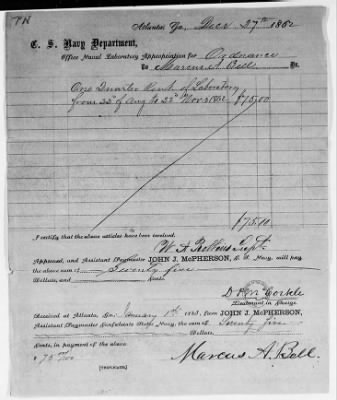 Atlanta Ga, Decr 27th 1862
C. S. Navy Department,
Office Naval Laboratory Appropriation for Ordnance
To Marcus A Bell Dr.
One Quarter Rent of Laboratory
from 22d of Aug to 22d Novr 1862 $75.00
$75.00
I certify that the above articles have been received.
Supt.
Approved, and Assistant Paymaster JOHN J. McPHERSON, C. S. Navy, will pay
the above sum of Seventy five
Dollars, and Cents.
D P McCorkle
Lieutenant in Charge
Received at Atlanta, Ga. January 1st 1863, from JOHN J. McPHERSON,
Assistant Paymaster Confederate States Navy, the sum of Seventy five
Dollars,
Cents, in payment of the above
$ 75 /100
Marcus A. Bell.
[TRIPLICATE.]